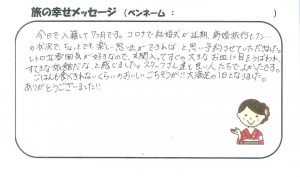 旅の幸せメッセージ (ペンネーム : )
今日で入籍して7ヶ月です。コロナで結婚式が延期、新婚旅行もたい…
の状況で、ちょっとでも楽しい思い出ができればと思い予約させていただきました。
レトロな雰囲気が好きなので、玄関入ってすぐの大きなお皿に目をうばわれ、
すてきな旅館だな、と感じました。スタッフさん達も良い人たちでよかったです。
ごはんも食べきれないくらいのおいしいごちそうが!!大満足の1日となりました。
ありがとうございました!!